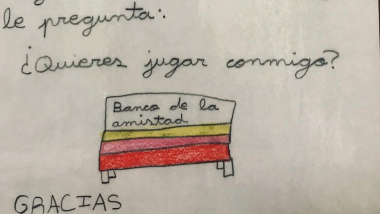 le pregunta:
¿Quieres jugar conmigo?
Banco de la
amistad
GRACIAS